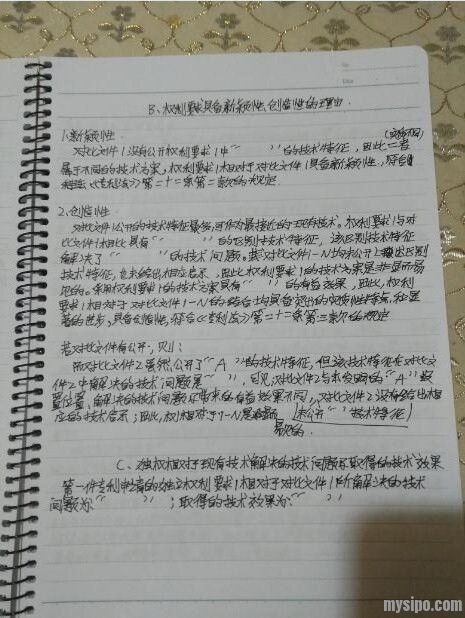 B、权利要求具备新颖性、创造性的理由.
1.新颖性.
对比文件1没有公开权利要求1中" "的技术特征, 因此二者
属于不同的技术方案, 权利要求1相对于对比文件1具备新颖性, 符合
《专利法》第二十二条第二款的规定
2.创造性.
对比文件1公开的技术特征最多, 可作为最接近的现有技术. 权利要求1与对
比文件1相比具有" "的区别技术特征, 该区别技术特征
解决了" "的技术问题. 对比文件1-N均未公开上述区别
技术特征, 也未给出相应启示, 因此权利要求1的技术方案是非显而易
见的. 采用权利要求1的技术方案具有" "的有益效果, 因此, 权利
要求1相对于对比文件1-N的结合均具备突出的实质性特点和显
著的进步, 具备创造性, 符合《专利法》第二十二条第三款的规定
若对比文件有公开, 则:
对比文件2虽然公开了"A"的技术特征, 但该技术特征在对比文
件2中解决的技术问题是" ", 可见, 对比文件2与本发明的"A"设
置位置, 解决的技术问题、带来的有益效果不同, 对比文件2没有给出相
应的技术启示; 因此, 权1相对于1-N是 未公开" "技术特征
易见的.
C、独权相对于现有技术解决的技术问题及取得的技术效果
第一件专利申请的独立权利要求1相对于对比文件1所解决的技术
问题为:" "; 取得的技术效果为:" "
mysipo.com